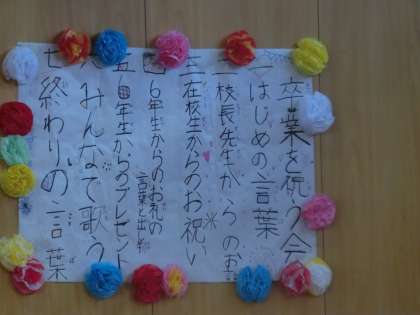 卒業を祝う会
一はじめの言葉
二校長先生からのお
三在校生からのお祝い
四6年生からのお礼の
言葉と出し物
五6年生からのプレゼント
六みんなで歌う
七終わりの言葉